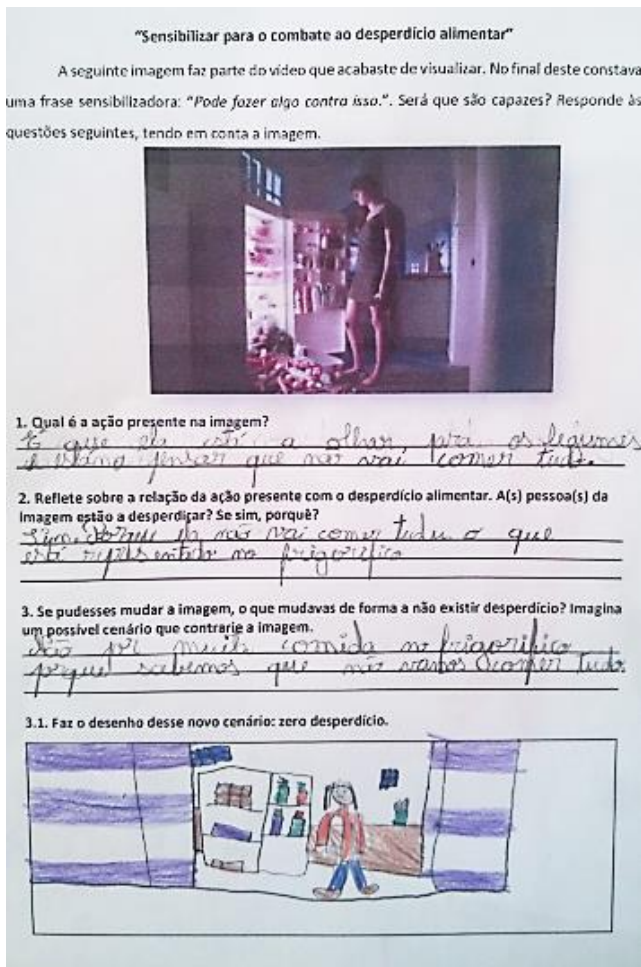 "Sensibilizar para o combate ao desperdício alimentar"
A seguinte imagem faz parte do vídeo que acabaste de visualizar. No final deste constava
uma frase sensibilizadora: "Pode fazer algo contra isso.". Será que são capazes? Responde às
questões seguintes, tendo em conta a imagem.
1. Qual é a ação presente na imagem?
É que ela está a olhar, pra os legumes
e pensar que não vai comer tudo.
2. Reflete sobre a relação da ação presente com o desperdício alimentar. A(s) pessoa(s) da
imagem estão a desperdiçar? Se sim, porquê?
Sim. Porque ela não vai comer tudo o que
está no frigorífico
3. Se pudesses mudar a imagem, o que mudavas de forma a não existir desperdício? Imagina
um possível cenário que contrarie a imagem.
Não pôr muita comida no frigorífico
porque sabemos que não vamos comer tudo.
3.1. Faz o desenho desse novo cenário: zero desperdício.